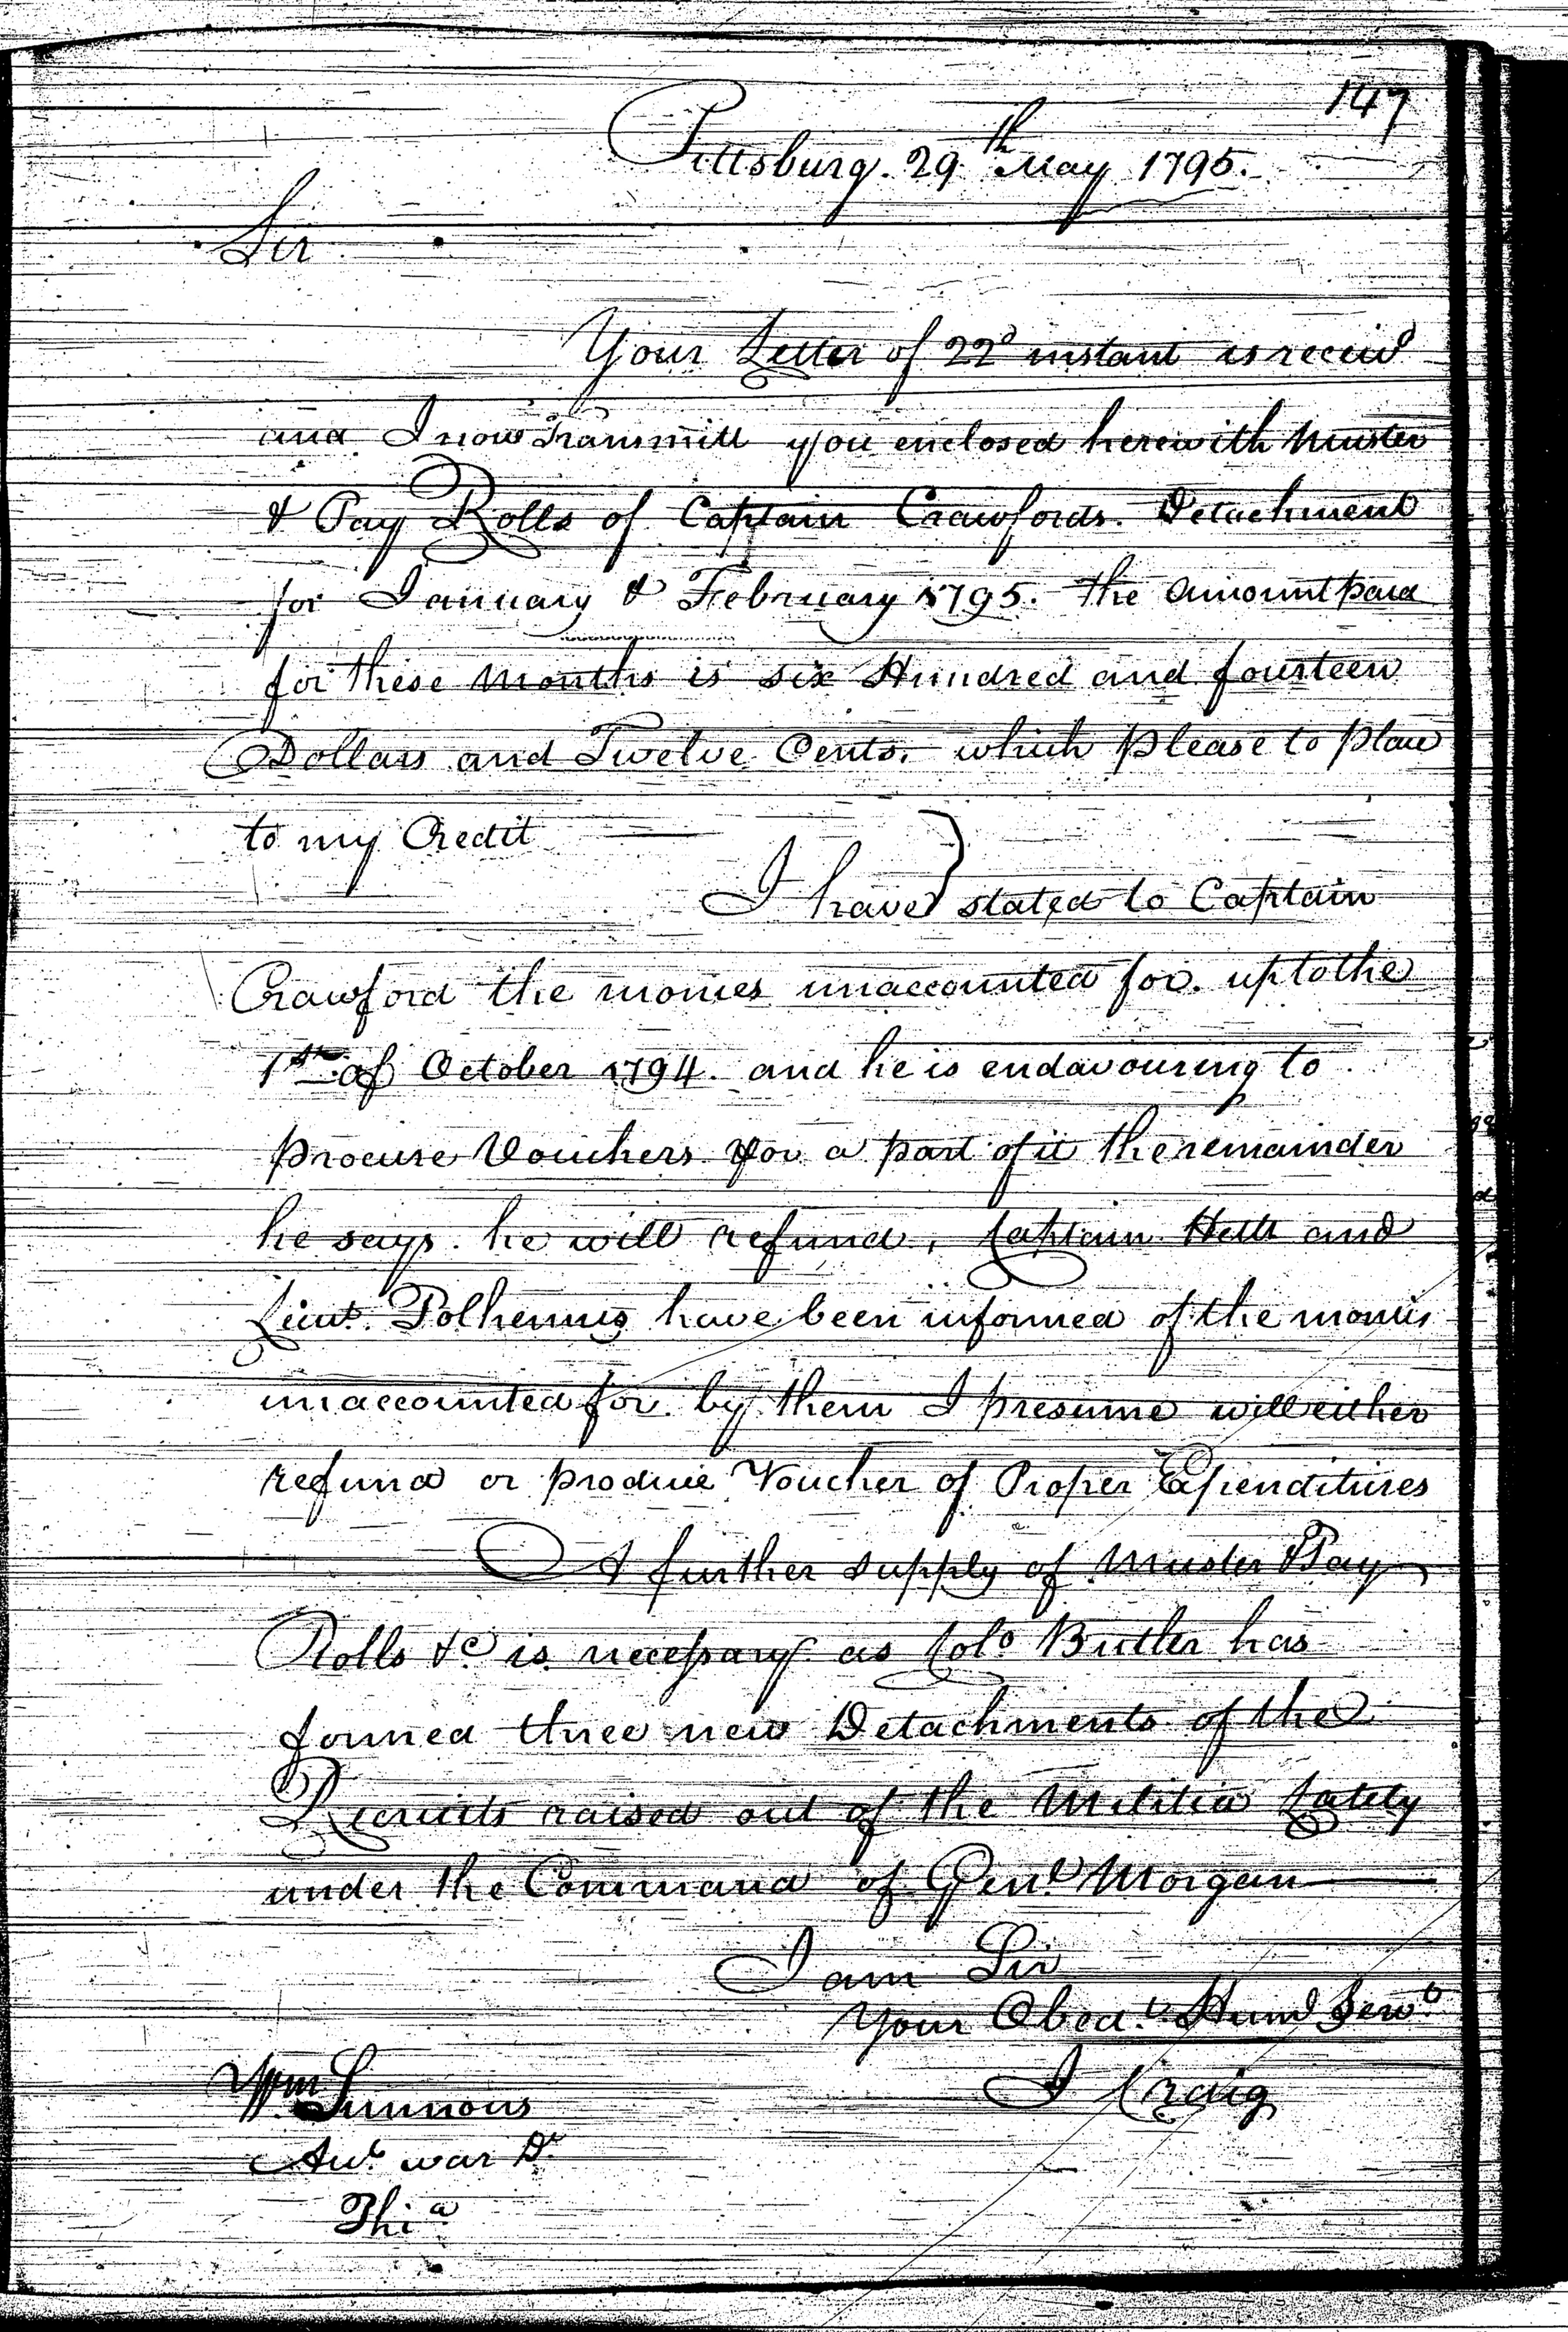 147
Pittsburg. 29th May 1795.
Sir
Your Letter of 22d instant is receivd
and I now Transmitt you enclosed herewith Muster
& Pay Rolls of Captain Crawfords. Detachment
for January & February 1795. the amount paid
for these Months is six Hundred and fourteen
Dollars and Twelve Cents. which please to place
to my Credit
I have stated to Captain
Crawford the monies unaccounted for. up to the
1st of October 1794. and he is endavouring to
procure Vouchers for a part of it the remainder
he says. he will refund, Captain and
Lieut. Polhemus have been informed of the monies
unaccounted for. by them I presume will either
refund or produce Voucher of Proper Expenditures
A further supply of Muster & Pay
Rolls &c is necessary as Colo Butler has
formed three new Detachments of the
Recruits raised out of the Militia Lately
under the Command of Genl Morgan
I am Sir
Your Obedt. Huml Servt
I Craig
Wm Simmons
Acct war Dt
Phia